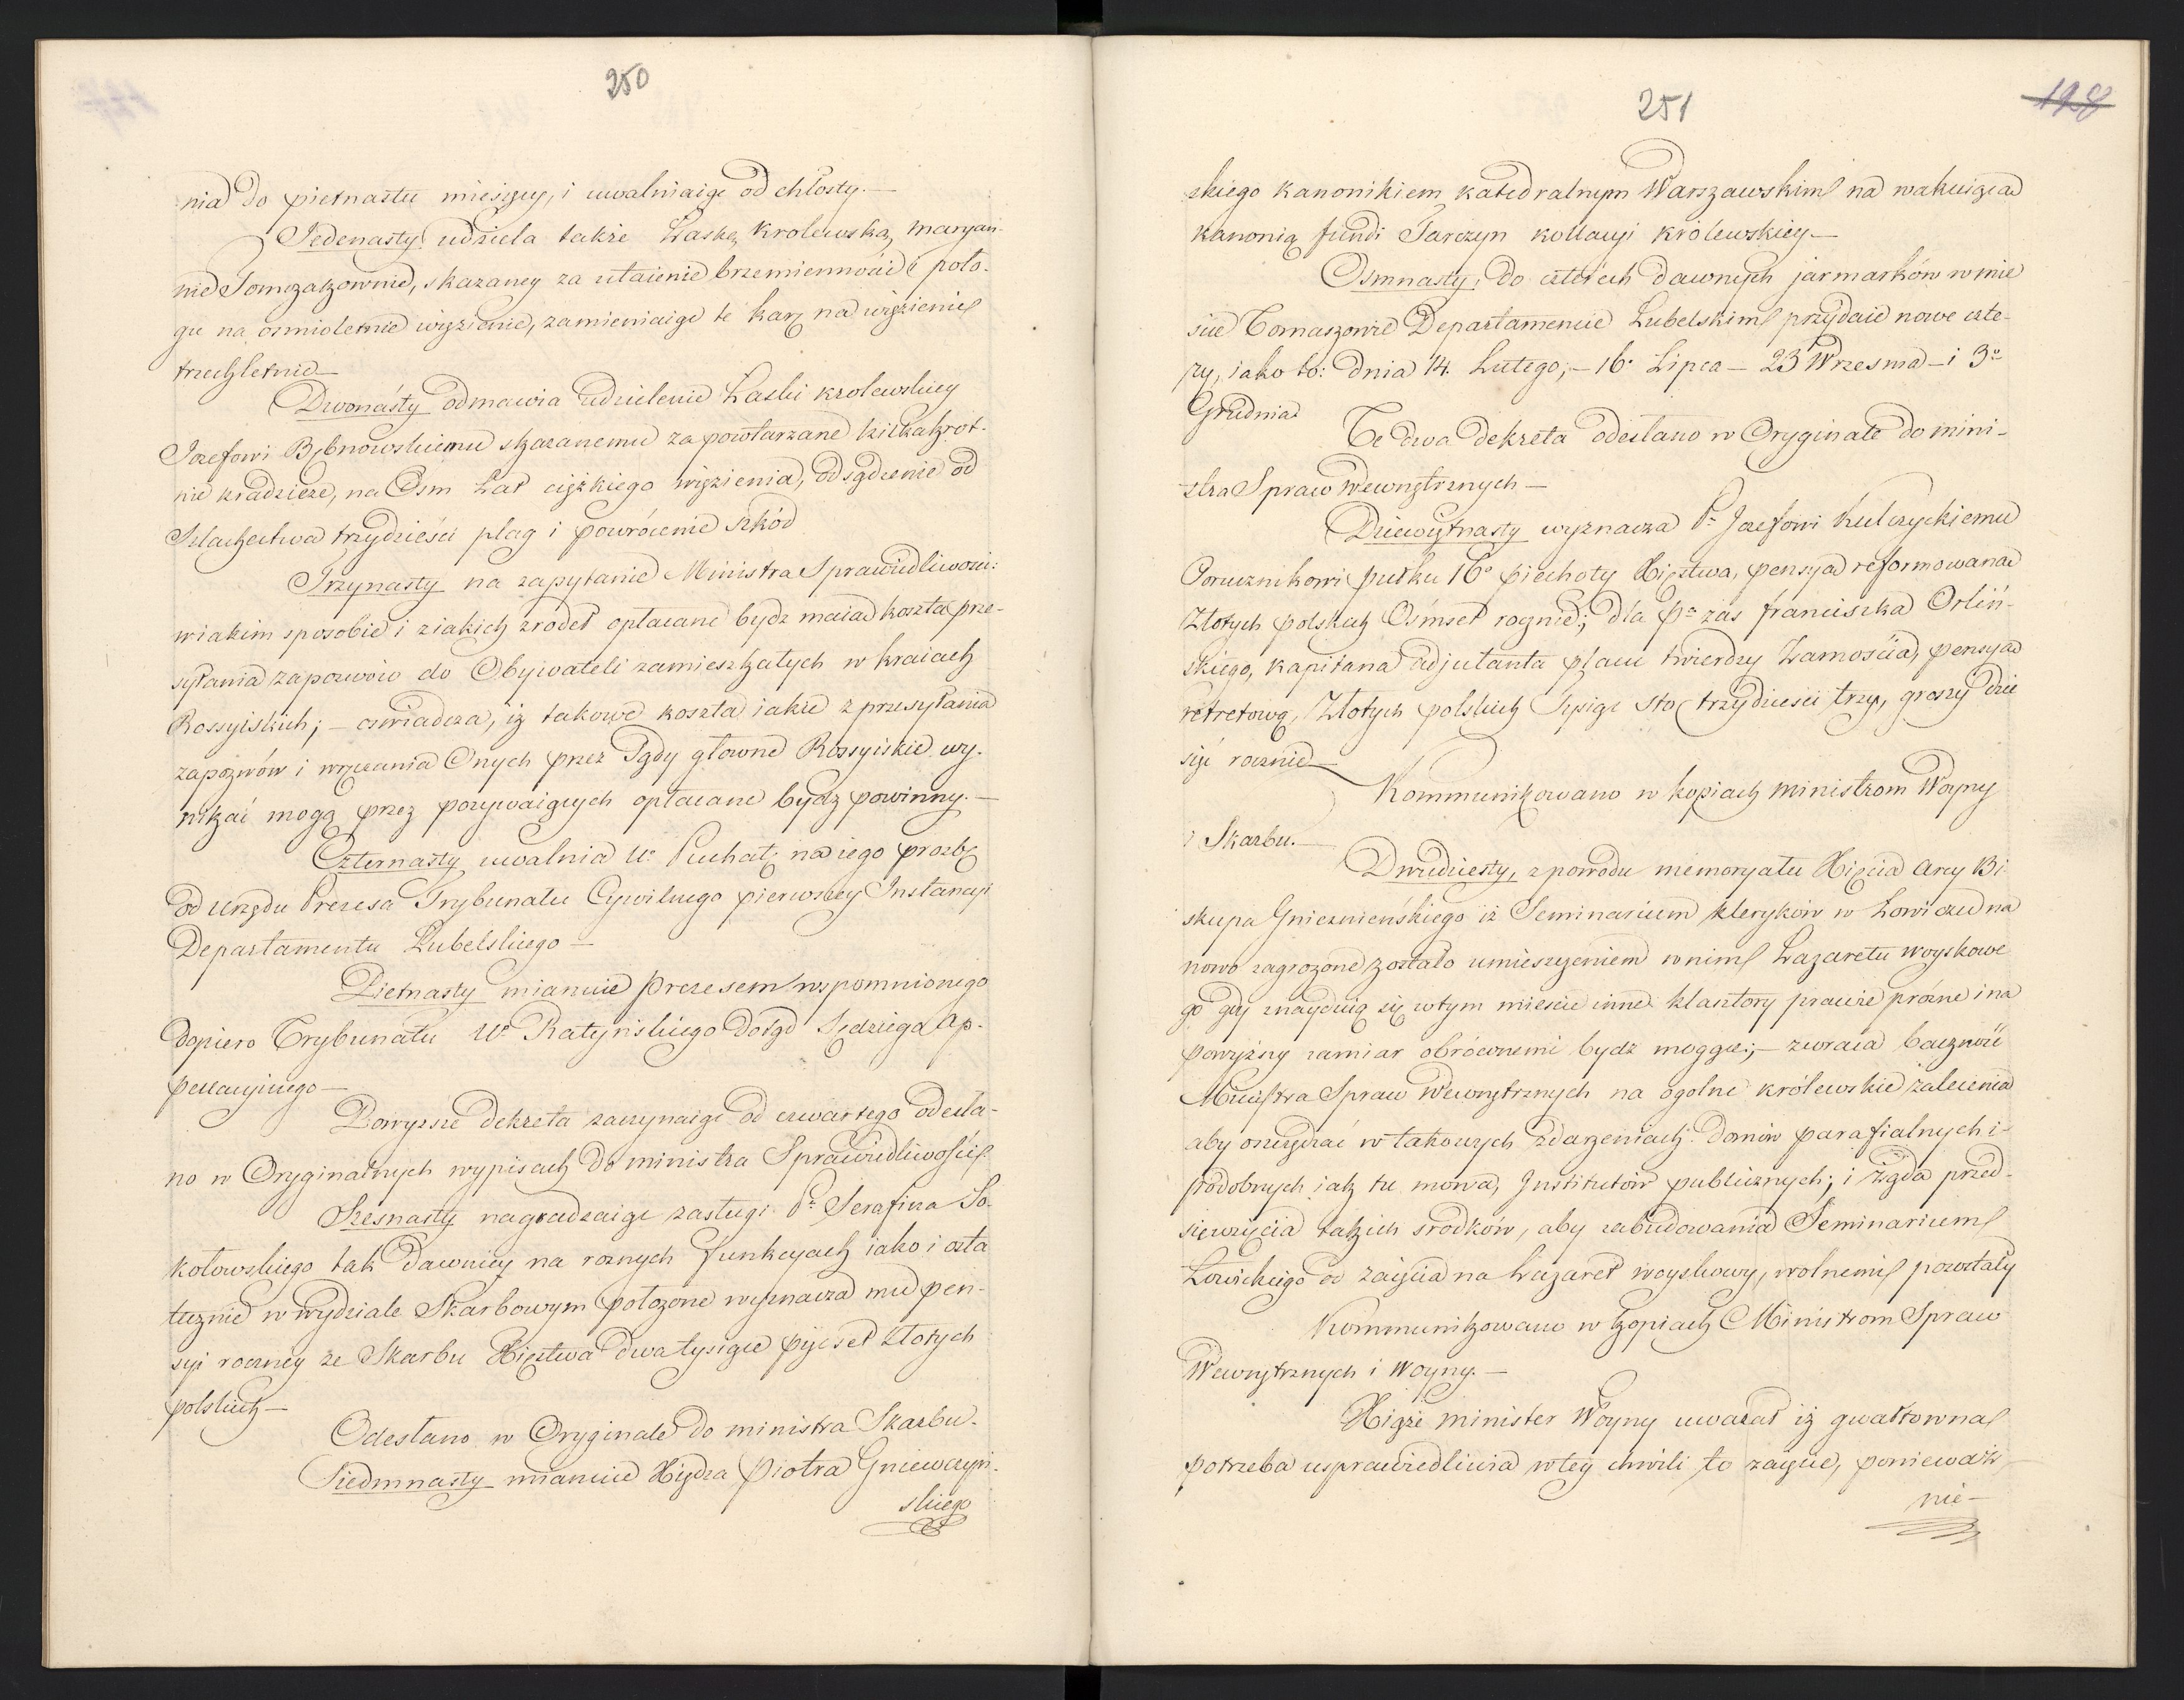 250
nia do pietnastu miesięcy, i uwalniaiąc od chłosty. —
Jedenasty udziela także Łaskę Krolewską, maryan-
nie Tomczakzownie, skazaney za utaienie brzemienności i poło-
gu na osmioletnie więzienie, zamieniaiąc te karę na więzienie
trzechletnie —
Dwonasty odmawia udzielenie Łaski krolewskiey
Jozefowi Bębnowskiemu skazanemu za powtarzane kilkakrot-
nie kradzieże, na Osm Lat ciężkiego więzienia, odsądzenie od
Szlachectwa trzydzieści plag i powrócenie szkód
Trzynasty na zapytanie Ministra Sprawiedliwości:
wiakim sposobie i ziakich zrodeł opłacane bydz maią koszta prze-
syłania zapozwów do Obywateli zamieszkałych w kraiach
Rossyiskich; — oswiadcza, iż takowe koszta iakie z przesyłania
zapozwów i wręczania Onych przez Sądy głowne Rossyiskie wy-
nikać mogą przez pozywaiących opłacane bydź powinny. —
Czternasty uwalnia W. Puchałę na iego prozbę
od urzędu Prezesa Trybunału Cywilnego pierwszey Instancyi
Departamentu Lubelskiego —
Pietnasty mianuie prezesem wspomnionego
dopiero Trybunału W. Ratyńskiego dotąd Sędziego Ap-
pellacyinego —
Powyższe dekreta zaczynaiąc od czwartego odesła-
no w Oryginalnych wypisach do ministra Sprawiedliwości
Szesnasty nagradzaiąc zasługi P. Serafina So-
kołowskiego tak dawniey na roznych funkcyach iako i osta
tecznie w wydziale Skarbowym położone wyznacza mu pen-
syi roczney ze Skarbu Xięztwa dwa tysiące pięćset złotych
polskich —
Odesłano w Oryginale do ministra Skarbu.
Siedmnasty mianuie Xiędza Piotra Gniewczyń-
skiego
251
198
skiego kanonikiem katedralnym Warszawskim na wakuiącą
kanonią fundi Tarczyn kollacyi królewskiey —
Osmnasty, do czterech dawnych jarmarków w mie
ście Tomaszowie Departamencie Lubelskim przydaie nowe czte-
ry, iako to: dnia 14. Lutego; — 16. Lipca — 23 Wrzesnia — i 3º
Grudnia
Te dwa dekreta odesłano w Oryginale do mini-
stra Spraw Wewnętrznych —
Dziewiętnasty wyznacza P. Jozefowi Kulczyckiemu
Porucznikowi pułku 16º piechoty Xięztwa, pensyą reformowaną
Złotych polskich Osmset rocznie; dla P. zas franciszka Orliń-
skiego, kapitana adjutanta placu twierdzy Zamościa, pensyą
retretową, Złotych polskich Tysiąc sto trzydzieści trzy, groszy dzie
sięć rocznie —
Kommunikowano w kopiach ministrom Woyny
i Skarbu. —
Dwudziesty, z powodu memoryału Xięcia Arcy Bi
skupa Gnieznieńskiego iż Seminarium kleryków w Łowiczu na
nowo zagrożone zostało umieszczeniem w nim Lazaretu woyskowe
go gdy znayduią się w tym miescie inne klasztory prawie prózne i na
powyższy zamiar obróconemi bydz mogące; — zwraca baczność
Ministra Spraw Wewnętrznych na ogolne królewskie zalecenia
aby oszczędzać w takowych zdarzeniach domów parafialnych i
podobnych iak tu mowa, Institutów publicznych; i żąda przed-
sięwzięcia takich srodków, aby zabudowania Seminarium
Łowickiego od zaięcia na Lazaret woyskowy, wolnemi pozostały
Kommunikowano w kopiach Ministrom Spraw
Wewnętrznych i Woyny. —
Xiąże Minister Woyny uważał iż gwałtowna
potrzeba usprawiedliwia w tey chwili to zaięcie, ponieważ
nie —